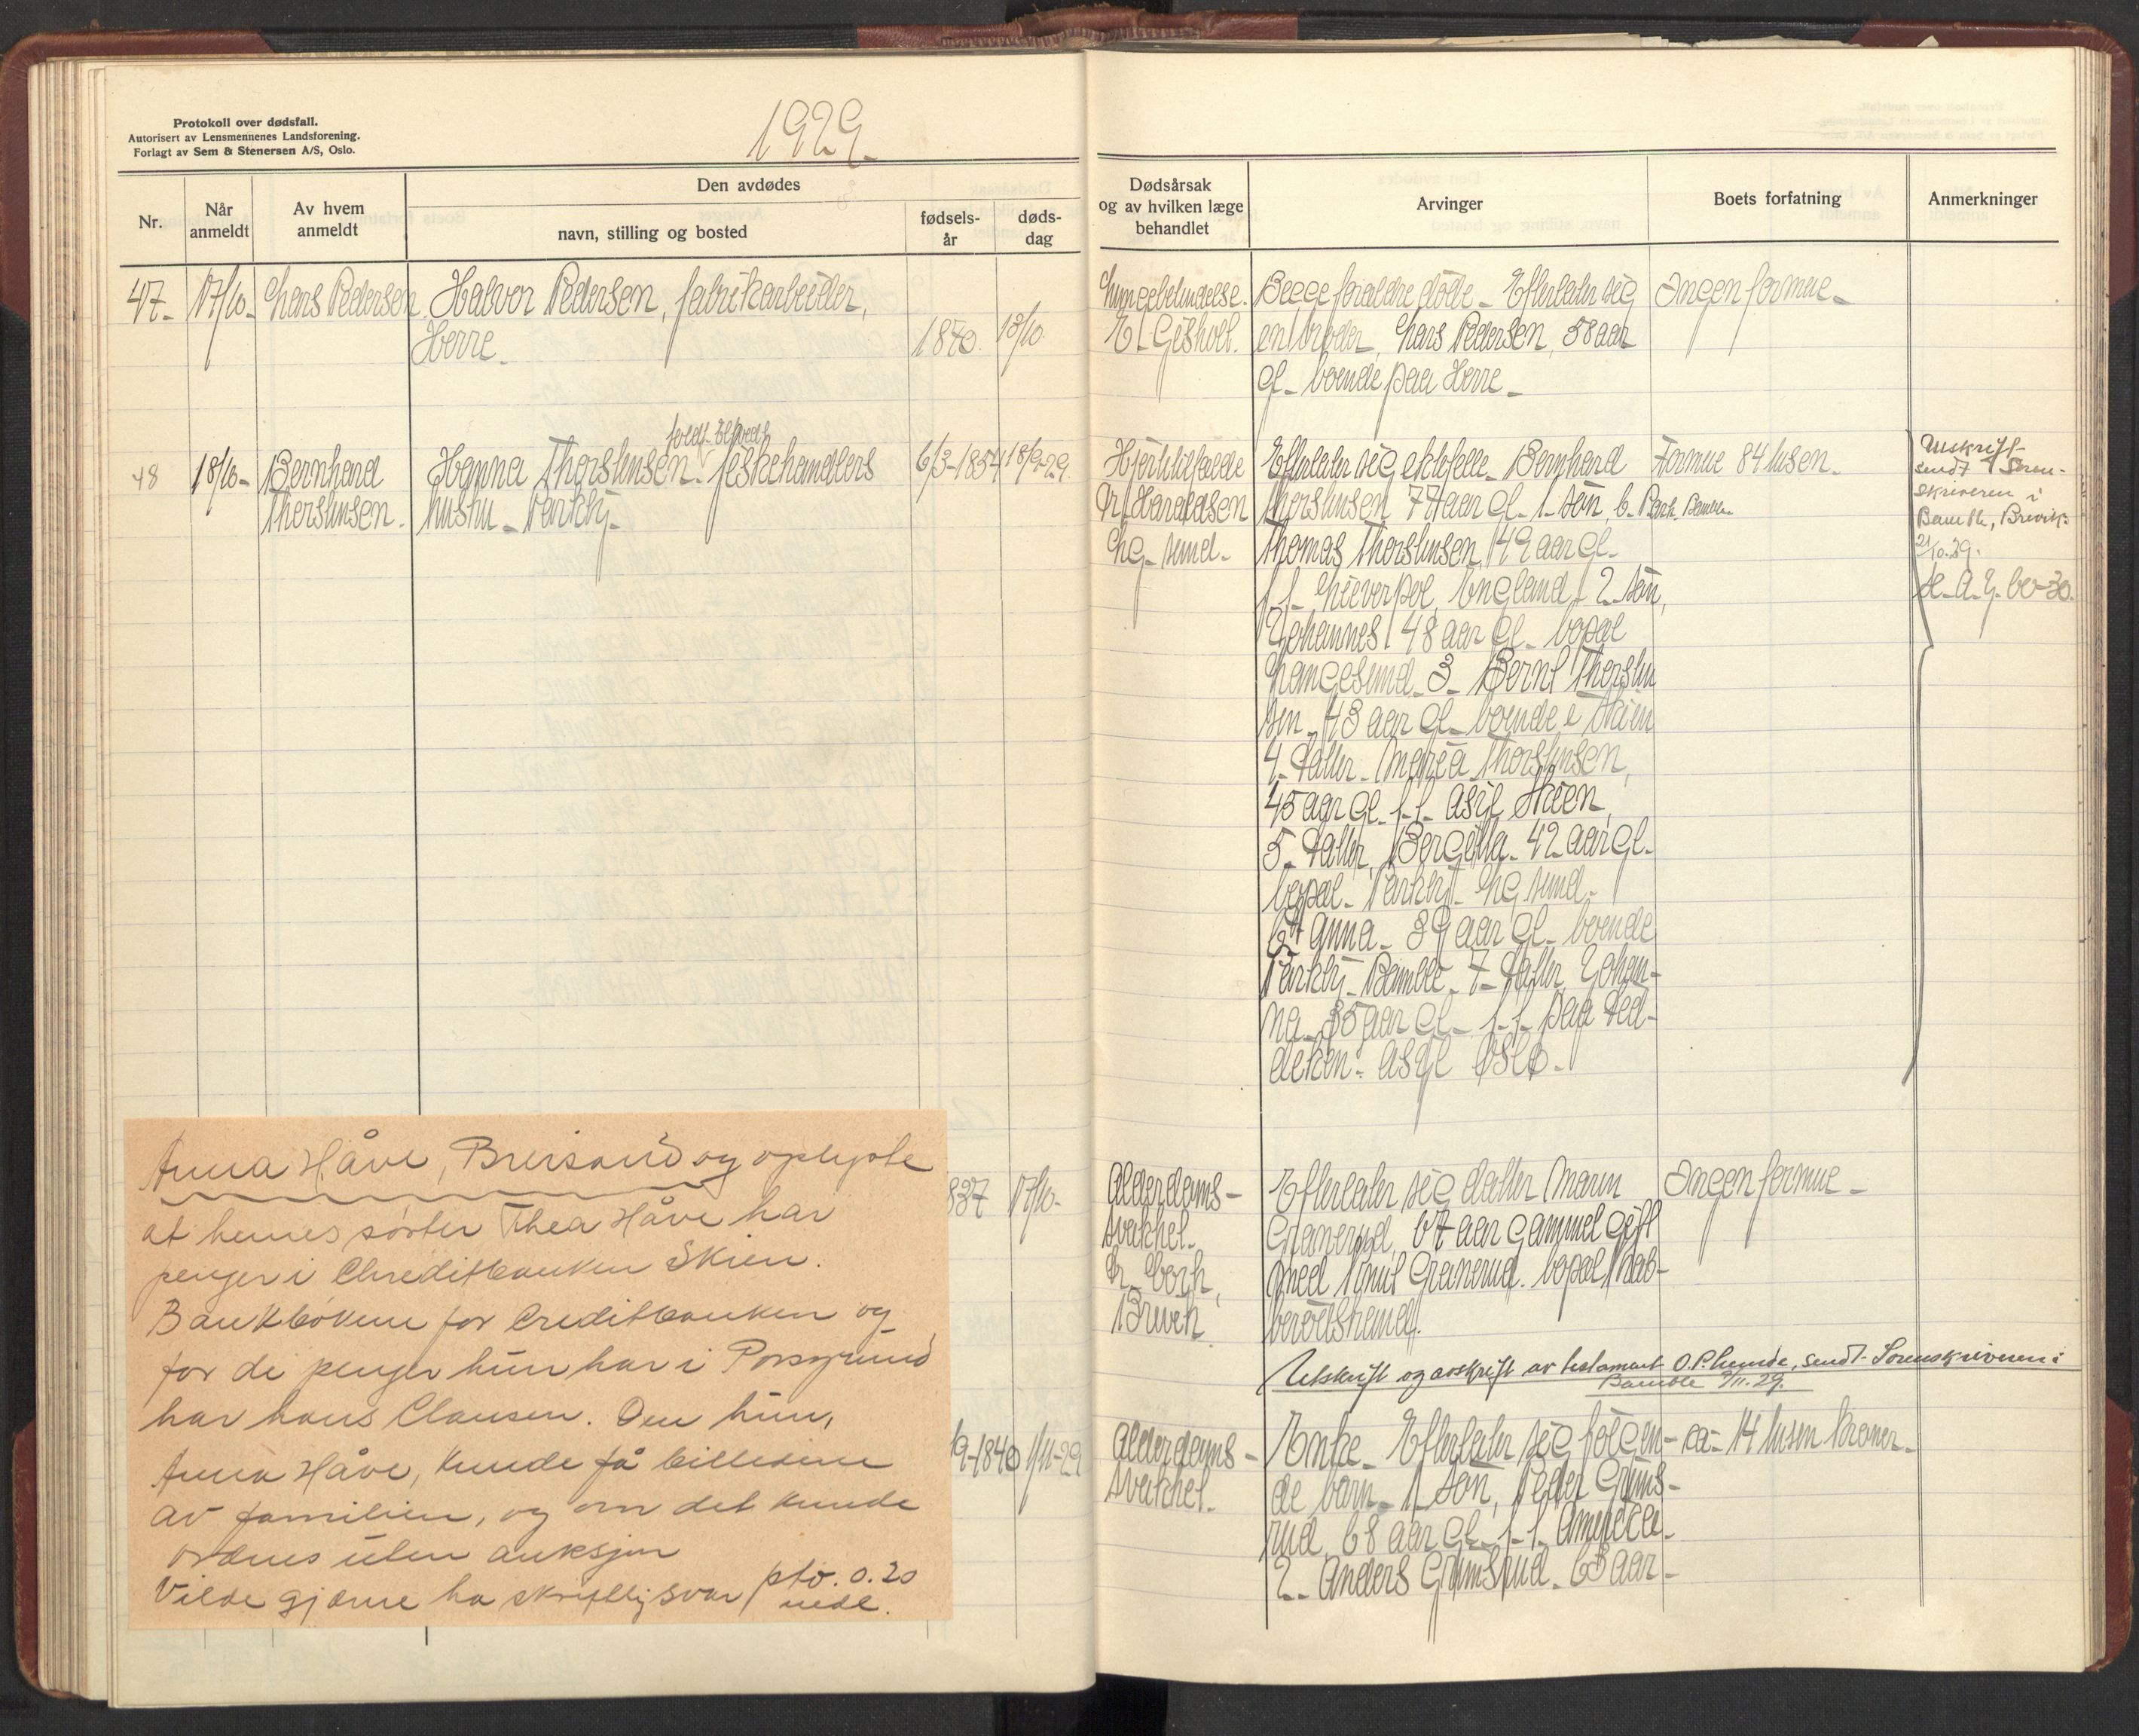 Protokoll over dødsfall.
Autorisert av Lensmennenes Landsforening.
Forlagt av Sem & Stenersen A/S, Oslo.
1929
Nr.
Når
anmeldt
Av hvem
anmeldt
Den avdødes
navn, stilling og bosted
fødsels-
år
døds-
dag
Dødsårsak
og av hvilken læge
behandlet
Arvinger
Boets forfatning
Anmerkninger
47- 17/10- Lars Pedersen Halvor Pedersen, fabrikarbeider,
Herre
1870. 13/10.
Lungebetændelse.
E. Gisholt.
Begge foraldre döde - Efterlater sig
en broder, Lars Pedersen, 58 aar
gl- boende paa Herre -
Ingen formue -
48 18/10- Bernhard
Thorstensen.
Hanna Thorstensen. fiskehandlers
hustru
6/3-1854
29.
Hjertetilfælde
Dr Haraldsen
Lg- sund-
Efterlater sig ektefelle - Bernhard
Thorstensen 77 aar gl- 1- sön, b.
Thomas Thorstensen, 49 aar gl-
f. t- Lieverpol, England - 2 sön,
Johannes 48 aar gl- bopæl
Langesund - 3- Bernt Thorsten
sen. 43 aar gl- boende i Skien
4- datter- Thorstensen,
45 aar gl. f. t- asyl Skien,
5- datter, Bergitta - 42 aar gl-
bopæl- Lg sund-
6 Anna - 39 aar gl- boende
Bamble - 7- datter, Johan-
na- 35 aar gl- f. t- paa
asyl Oslo -
Formue 84 tusen-
Utskrift
sendt Soren-
skriveren i
Bamble, Brevik
21/10.29.
837 17/10-
Alderdoms-
svakhet-
Dr-
Brevik
Efterlater sig datter Maren
Granerud, 67 aar gammel gift
med Knut Granerud. bopæl
Ingen formue -
Utskrift og avskrift av testament O.P. sendt Sorenskriveren i
Bamble 9/11.29.
9-1840 1/11-29
Alderdoms-
svakhet-
Enke - Efterlater sig fölgen-
de barn - 1- Sön, Peder Grims-
rud, 68 aar gl- f. t- Amerika-
2- Anders Grimsrud - 63 aar -
ca- 14 tusen kroner-
Anna Håve, og oplyste
at hennes søster Thea Håve har
penger i Chreditbanken Skien.
Bankbökene for Creditbanken og
for de penger hun har i Porsgrund
har hans Clausen. Om hun,
Anna Håve, kunde få billedene
av familien, og om det kunde
ordnes uten auksjon
Vilde gjærne ha skriftlig svar / pto. 0.20
vedl.